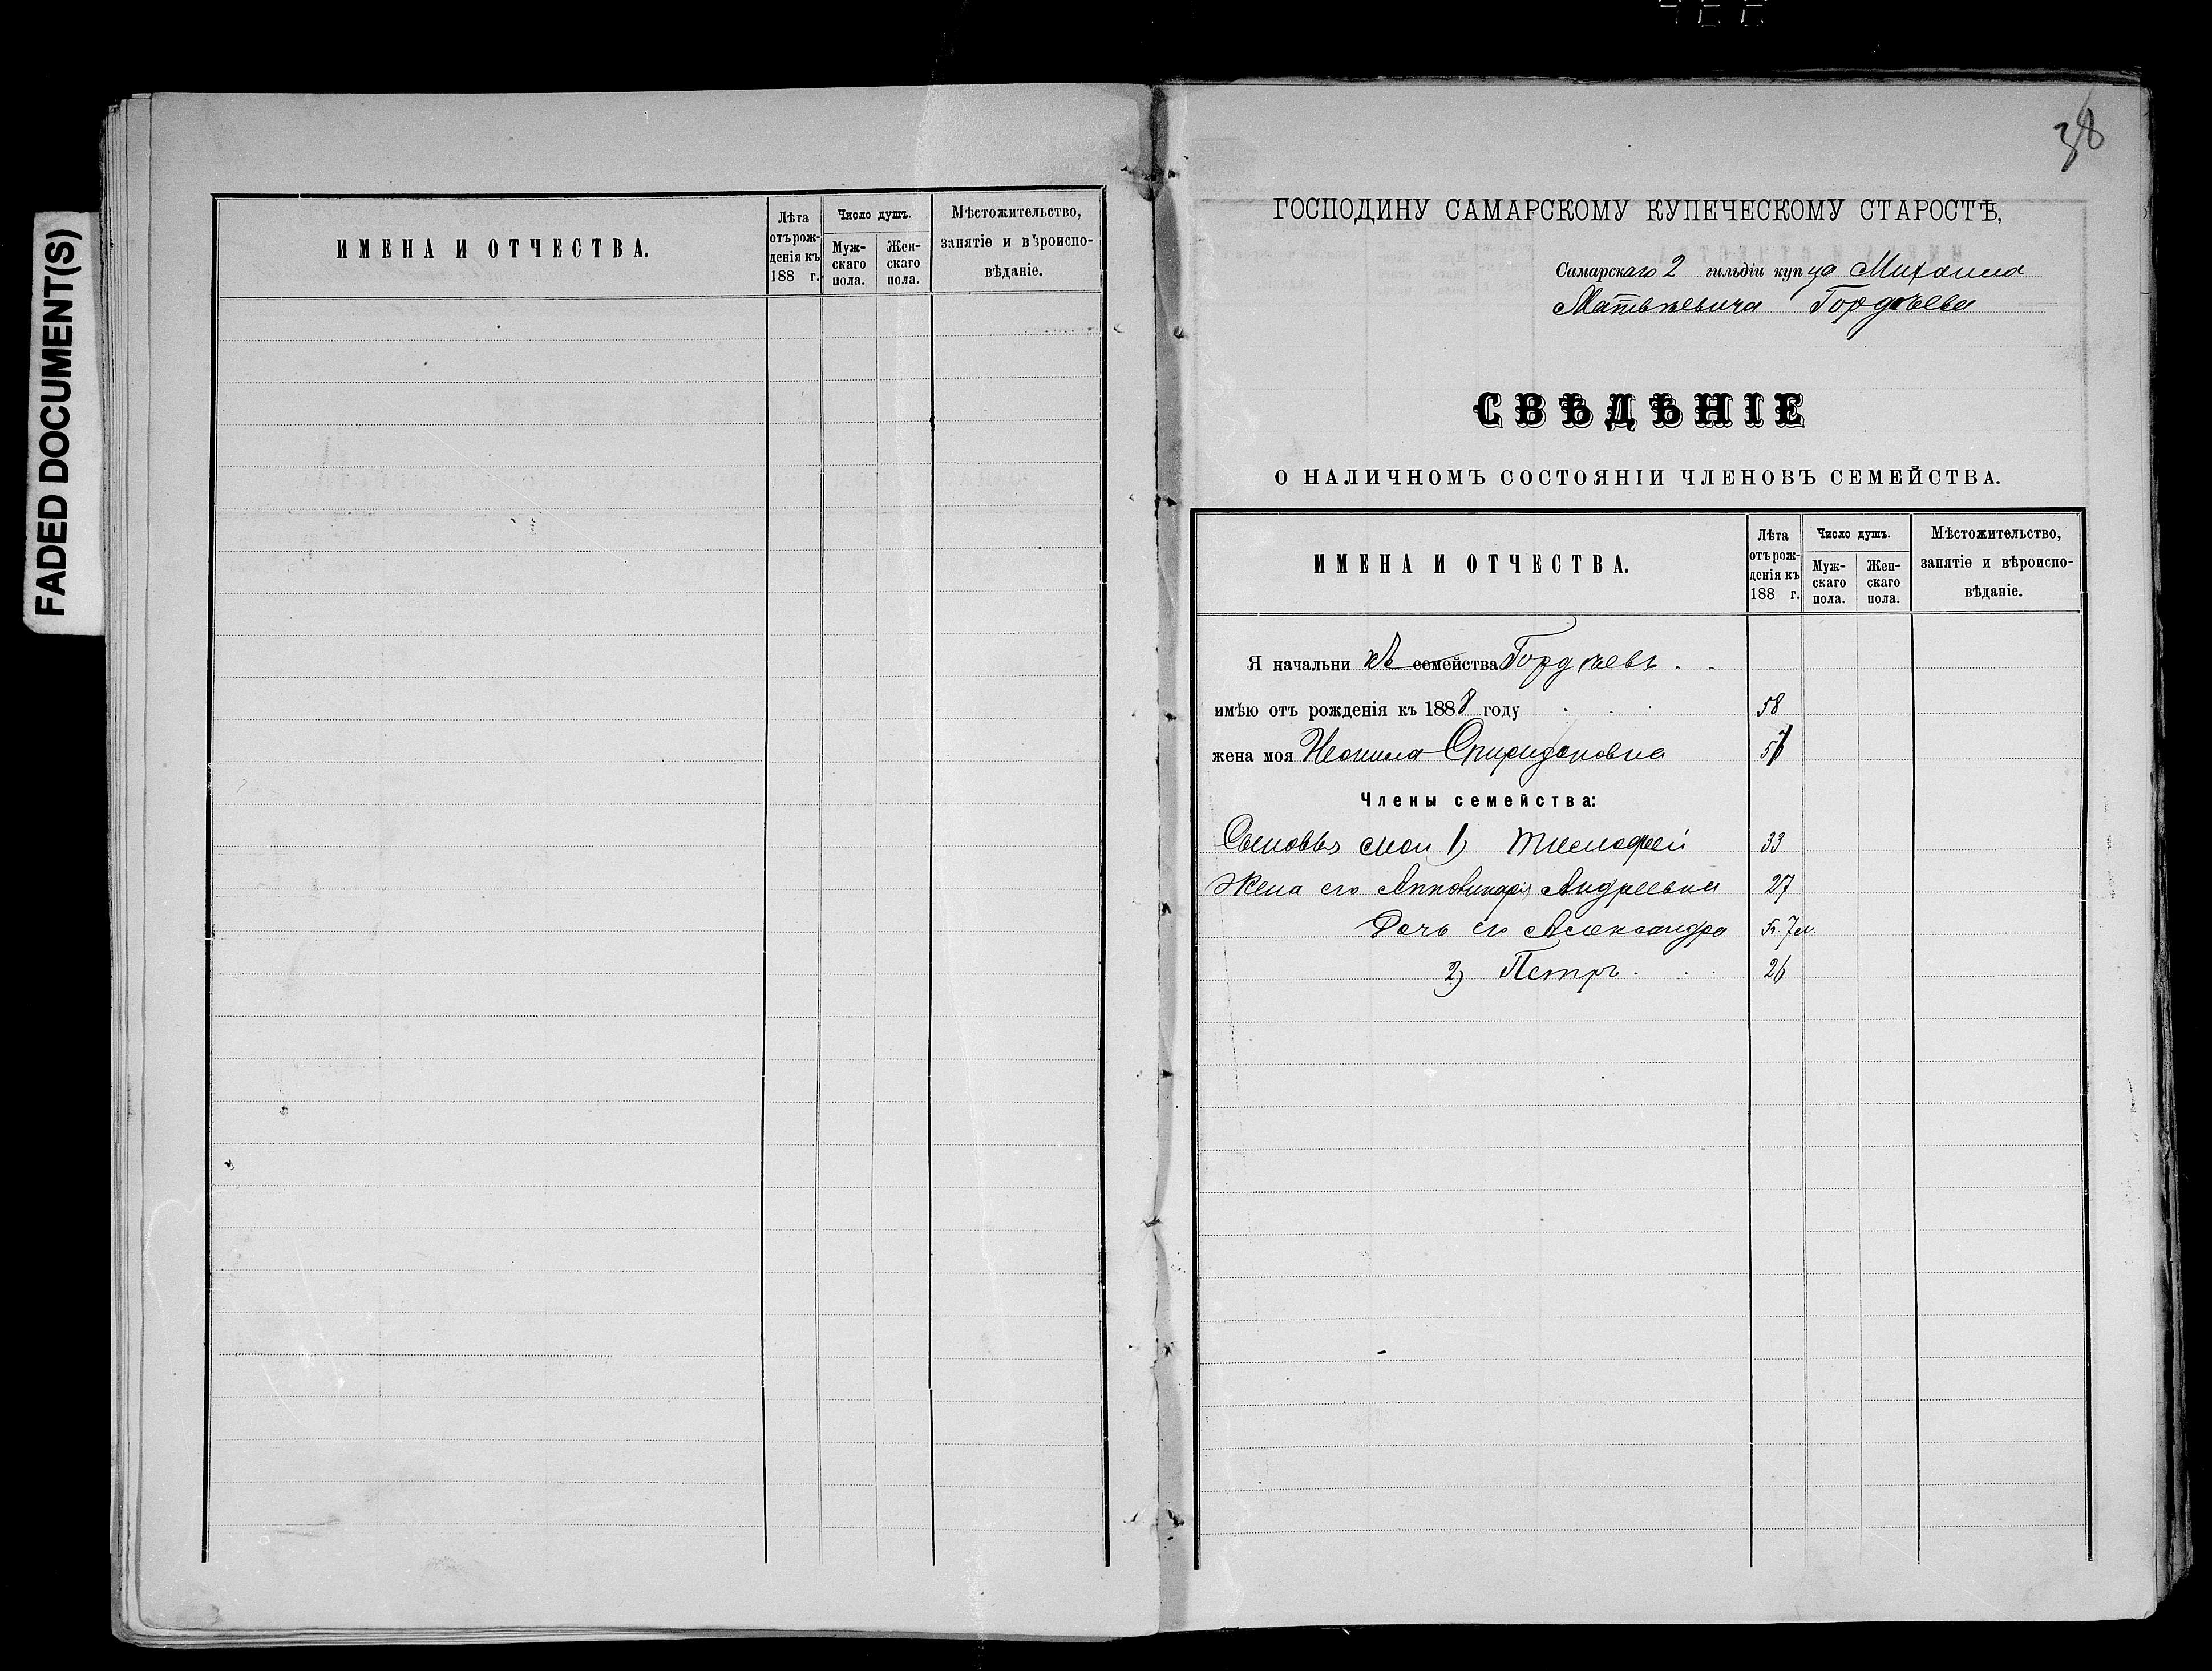 FADED DOCUMENT(S)
ИМЕНА И ОТЧЕСТВА.
Лѣта отъ рожденія къ 188 г.
Число душъ.
Мужскаго пола.
Женскаго пола.
Мѣстожительство, занятіе и вѣроисповѣданіе.
38
ГОСПОДИНУ САМАРСКОМУ КУПЕЧЕСКОМУ СТАРОСТѢ,
Самарскаго 2 гильдіи купца Михаила
Матвѣевича Гордѣева
СВѢДѢНІЕ
О НАЛИЧНОМЪ СОСТОЯНІИ ЧЛЕНОВЪ СЕМЕЙСТВА.
ИМЕНА И ОТЧЕСТВА.
Лѣта отъ рожденія къ 188 г.
Число душъ.
Мужскаго пола.
Женскаго пола.
Мѣстожительство, занятіе и вѣроисповѣданіе.
Я начальникъ семейства Гордѣевъ
имѣю отъ рожденія къ 1888 году 58
жена моя Неонила Спиридоновна
Члены семейства:
Сыновья мои 1) Тимофей 33
Жена его Андреевна 27
Дочь его Александра 7 м.
2) Петръ 26